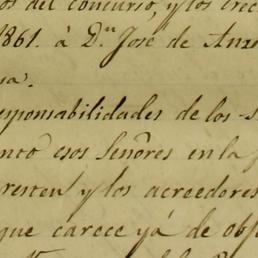 os del concurso, y los cre
1861. á D.n José de Anzo
sa.
esponsabilidades de los
esos Señores en la
y los acreedores
que carece yá de obj